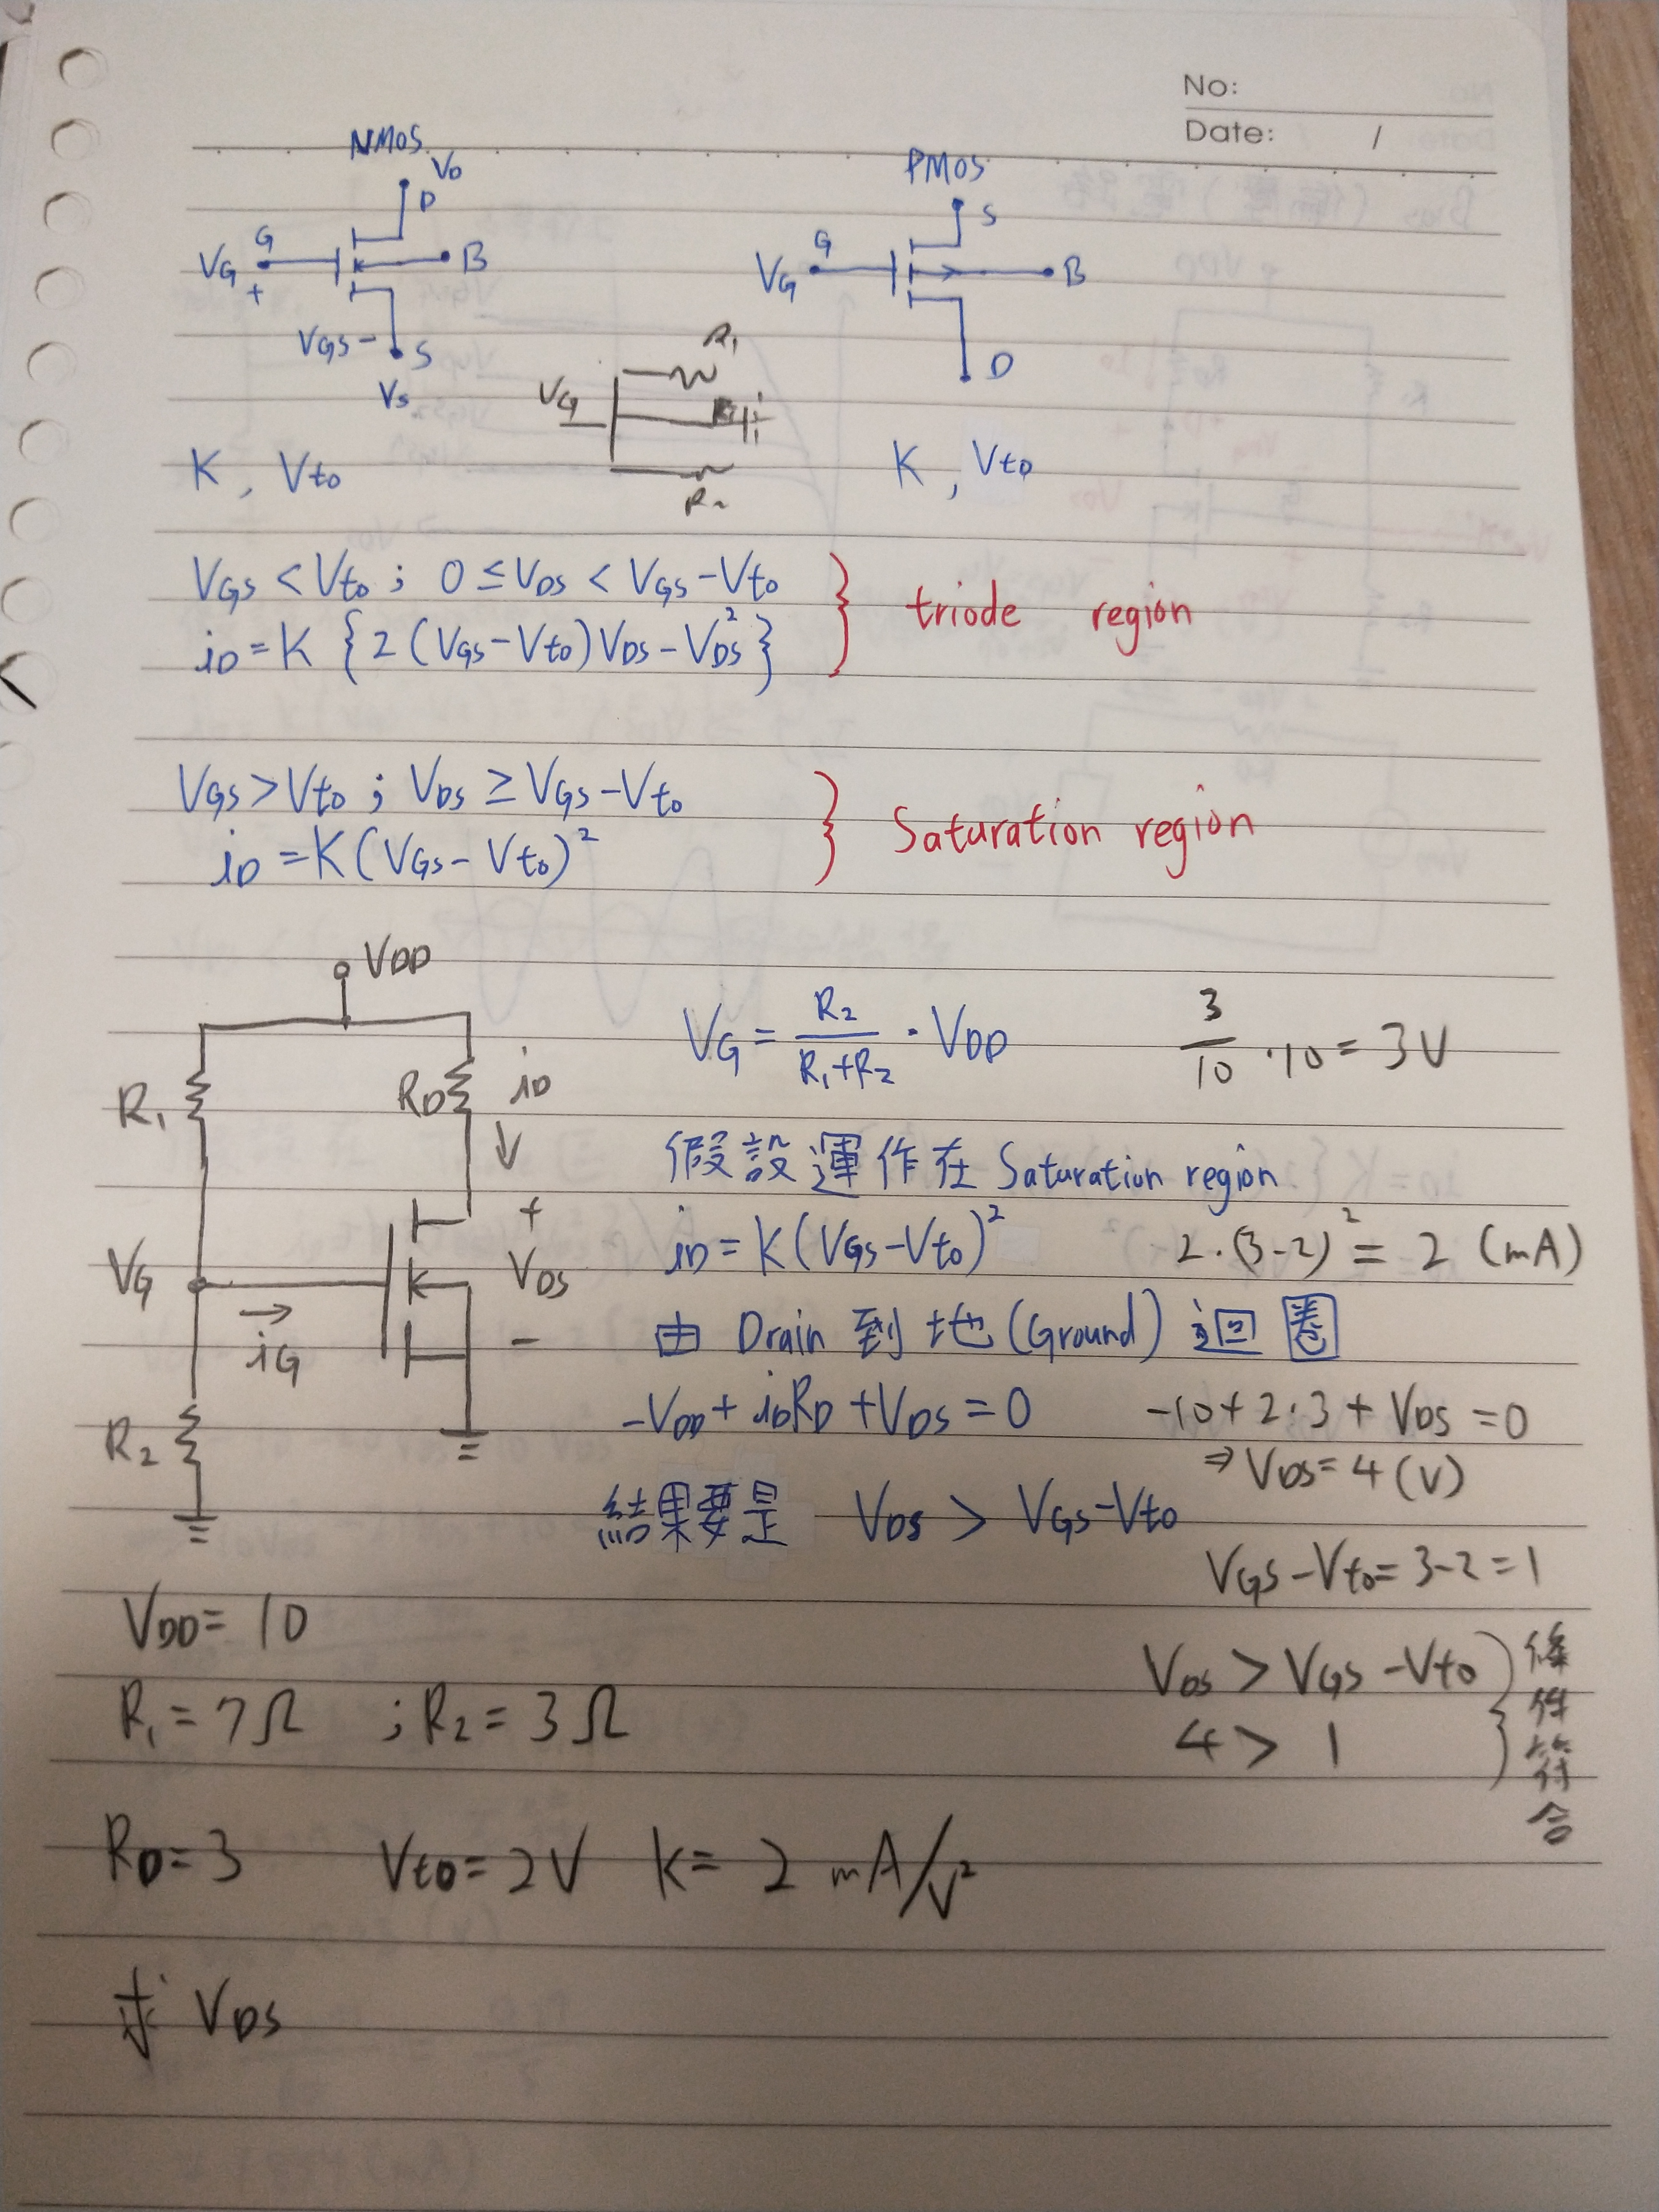 No:
Date: /
NMOS
VD
D
G
VG
+
B
VGS -
S
VS
PMOS
S
G
VG
B
D
R1
VG
K , Vto
K , Vto
VGS < Vto ; 0 ≤ VDS < VGS - Vto
iD = K { 2 (VGS - Vto) VDS - VDS² }
triode region
VGS > Vto ; VDS ≥ VGS - Vto
iD = K (VGS - Vto)²
Saturation region
VDD
R1
RD
iD
VG
iG
+
VDS
-
R2
VG = R2 / (R1+R2) · VDD
3/10 · 10 = 3V
假設運作在 Saturation region
iD = K (VGS - Vto)²
2 · (3-2)² = 2 (mA)
由 Drain 到 地 (Ground) 迴圈
-VDD + iDRD + VDS = 0
-10 + 2·3 + VDS = 0
⇒ VDS = 4 (V)
結果要是 VDS > VGS - Vto
VGS - Vto = 3 - 2 = 1
VDS > VGS - Vto
4 > 1
條件符合
VDD = 10
R1 = 7Ω ; R2 = 3Ω
RD = 3 Vto = 2V K = 2 mA/V²
求 VDS